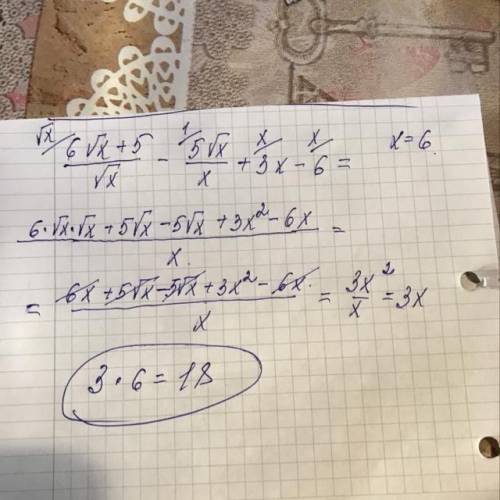 √x/ (6√x + 5)/√x - 1/ 5√x/x + x/ 3x - x/ 6 = x = 6.
(6·√x·√x + 5√x - 5√x + 3x² - 6x)/x =
= (6x + 5√x - 5√x + 3x² - 6x)/x = 3x²/x = 3x
3 · 6 = 18